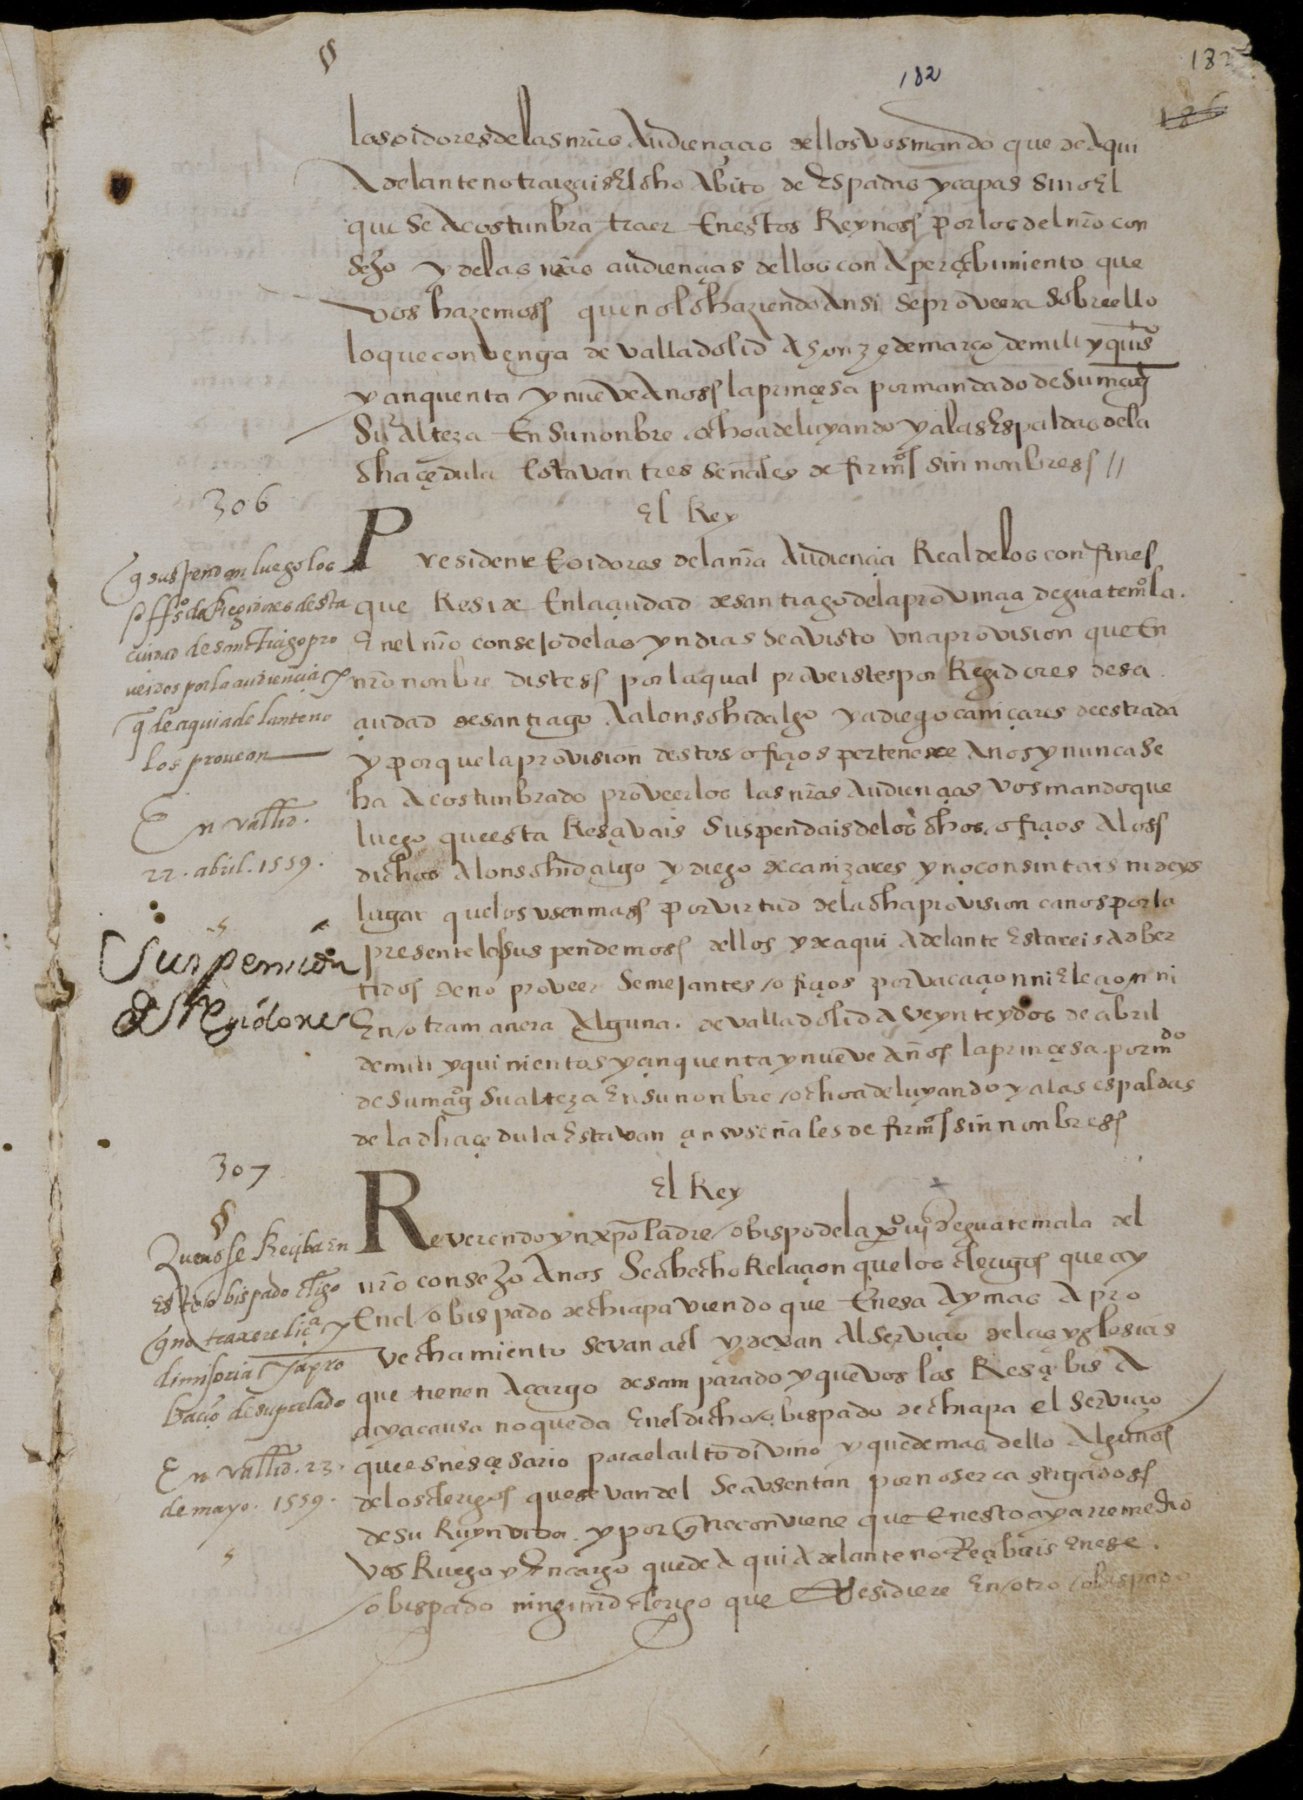 182
182
186
los oidores de las nrãs Audiençias dellos vos mando que de Aqui
Adelante no traigais El dho Abito de Espadas y capas sino El
que se Acostunbra traer En estos Reynos por los del nrõ con
sejo y de las nrãs audiençias dellos con Aperçebimiento que
vos hazemos que no lo haziendo Ansi se proveera sobre ello
lo que convenga de valladolid A honze de março de mill y quisº
y çinquenta y nueve Anos la prinçesa por mandado de su magt
Su Alteza En su nonbre ochoa de luyando y a las Espaldas de la
dha çedula Estavan tres señales de firmas sin nonbres //
306
El Rey
Presidente E oidores de la nrã Audiençia Real de los confines
que Reside En la çiudad de santiago de la provinçia de guatemala.
En el nrõ consejo de las yndias se a visto una provision que En
nrõ nonbre distes por la qual proveistes por Regidores desa
çiudad de santiago A alonso hidalgo y a diego caniçares de estrada
y porque la provision destos ofiçios pertenesçe A nos y nunca se
ha Acostunbrado proveerlos las nrãs Audiençias vos mando que
luego que esta Resçivais suspendais de los dhos ofiçios A los
dichos Alonso hidalgo y diego de canizares y no consintais ni deys
lugar que los usen mas por virtud de la dha provision ca nos por la
presente los suspendemos dellos y de aqui Adelante Estareis Adber
tidos de no proveer semejantes ofiçios por vacaçion ni Eleçion ni
En otra manera Alguna. de valladolid A veynte y dos de abril
de mill y quinientos y çinquenta y nueve Años la prinçesa. por mdo
de su magt su alteza En su nonbre ochoa de luyando y a las espaldas
de la dha çedula Estavan çinco señales de firmas sin nonbres
q suspendan luego los
offºs de Regidores desta
ciudad de santiago pro
veidos por la audiencia y
q de aqui adelante no
los provean
En vallid.
22. abril. 1559.
Suspension
de Regidores
307
El Rey
Reverendo yn xpõ Padre obispo de la provia de guatemala del
nrõ consejo A nos se a hecho Relaçion que los clerigos que ay
En el obispado de chiapa viendo que En esa Ay mas Apro
vechamiento se van a el y dexan Al serviçio de las yglesias
que tienen A cargo desamparado y que vos los Resçibis A
cuya causa no queda En el dicho obispado de chiapa el serviçio
que es nesçesario para el culto divino y que demas dello Algunos
de los clerigos que se van del se ausentan por no ser castigados
de su Ruyn vida. y porq̃ no conviene que En esto aya rremedio
vos Ruego y Encargo que de Aqui Adelante no Resçibais En ese.
obispado ningund clerigo que Residiere En otro obispado
Que no se Reçiba En
este obispado clerigo
q no traxere licª y
dimisoria y apro
baciõ de su prelado
En vallid. 23.
de mayo. 1559.